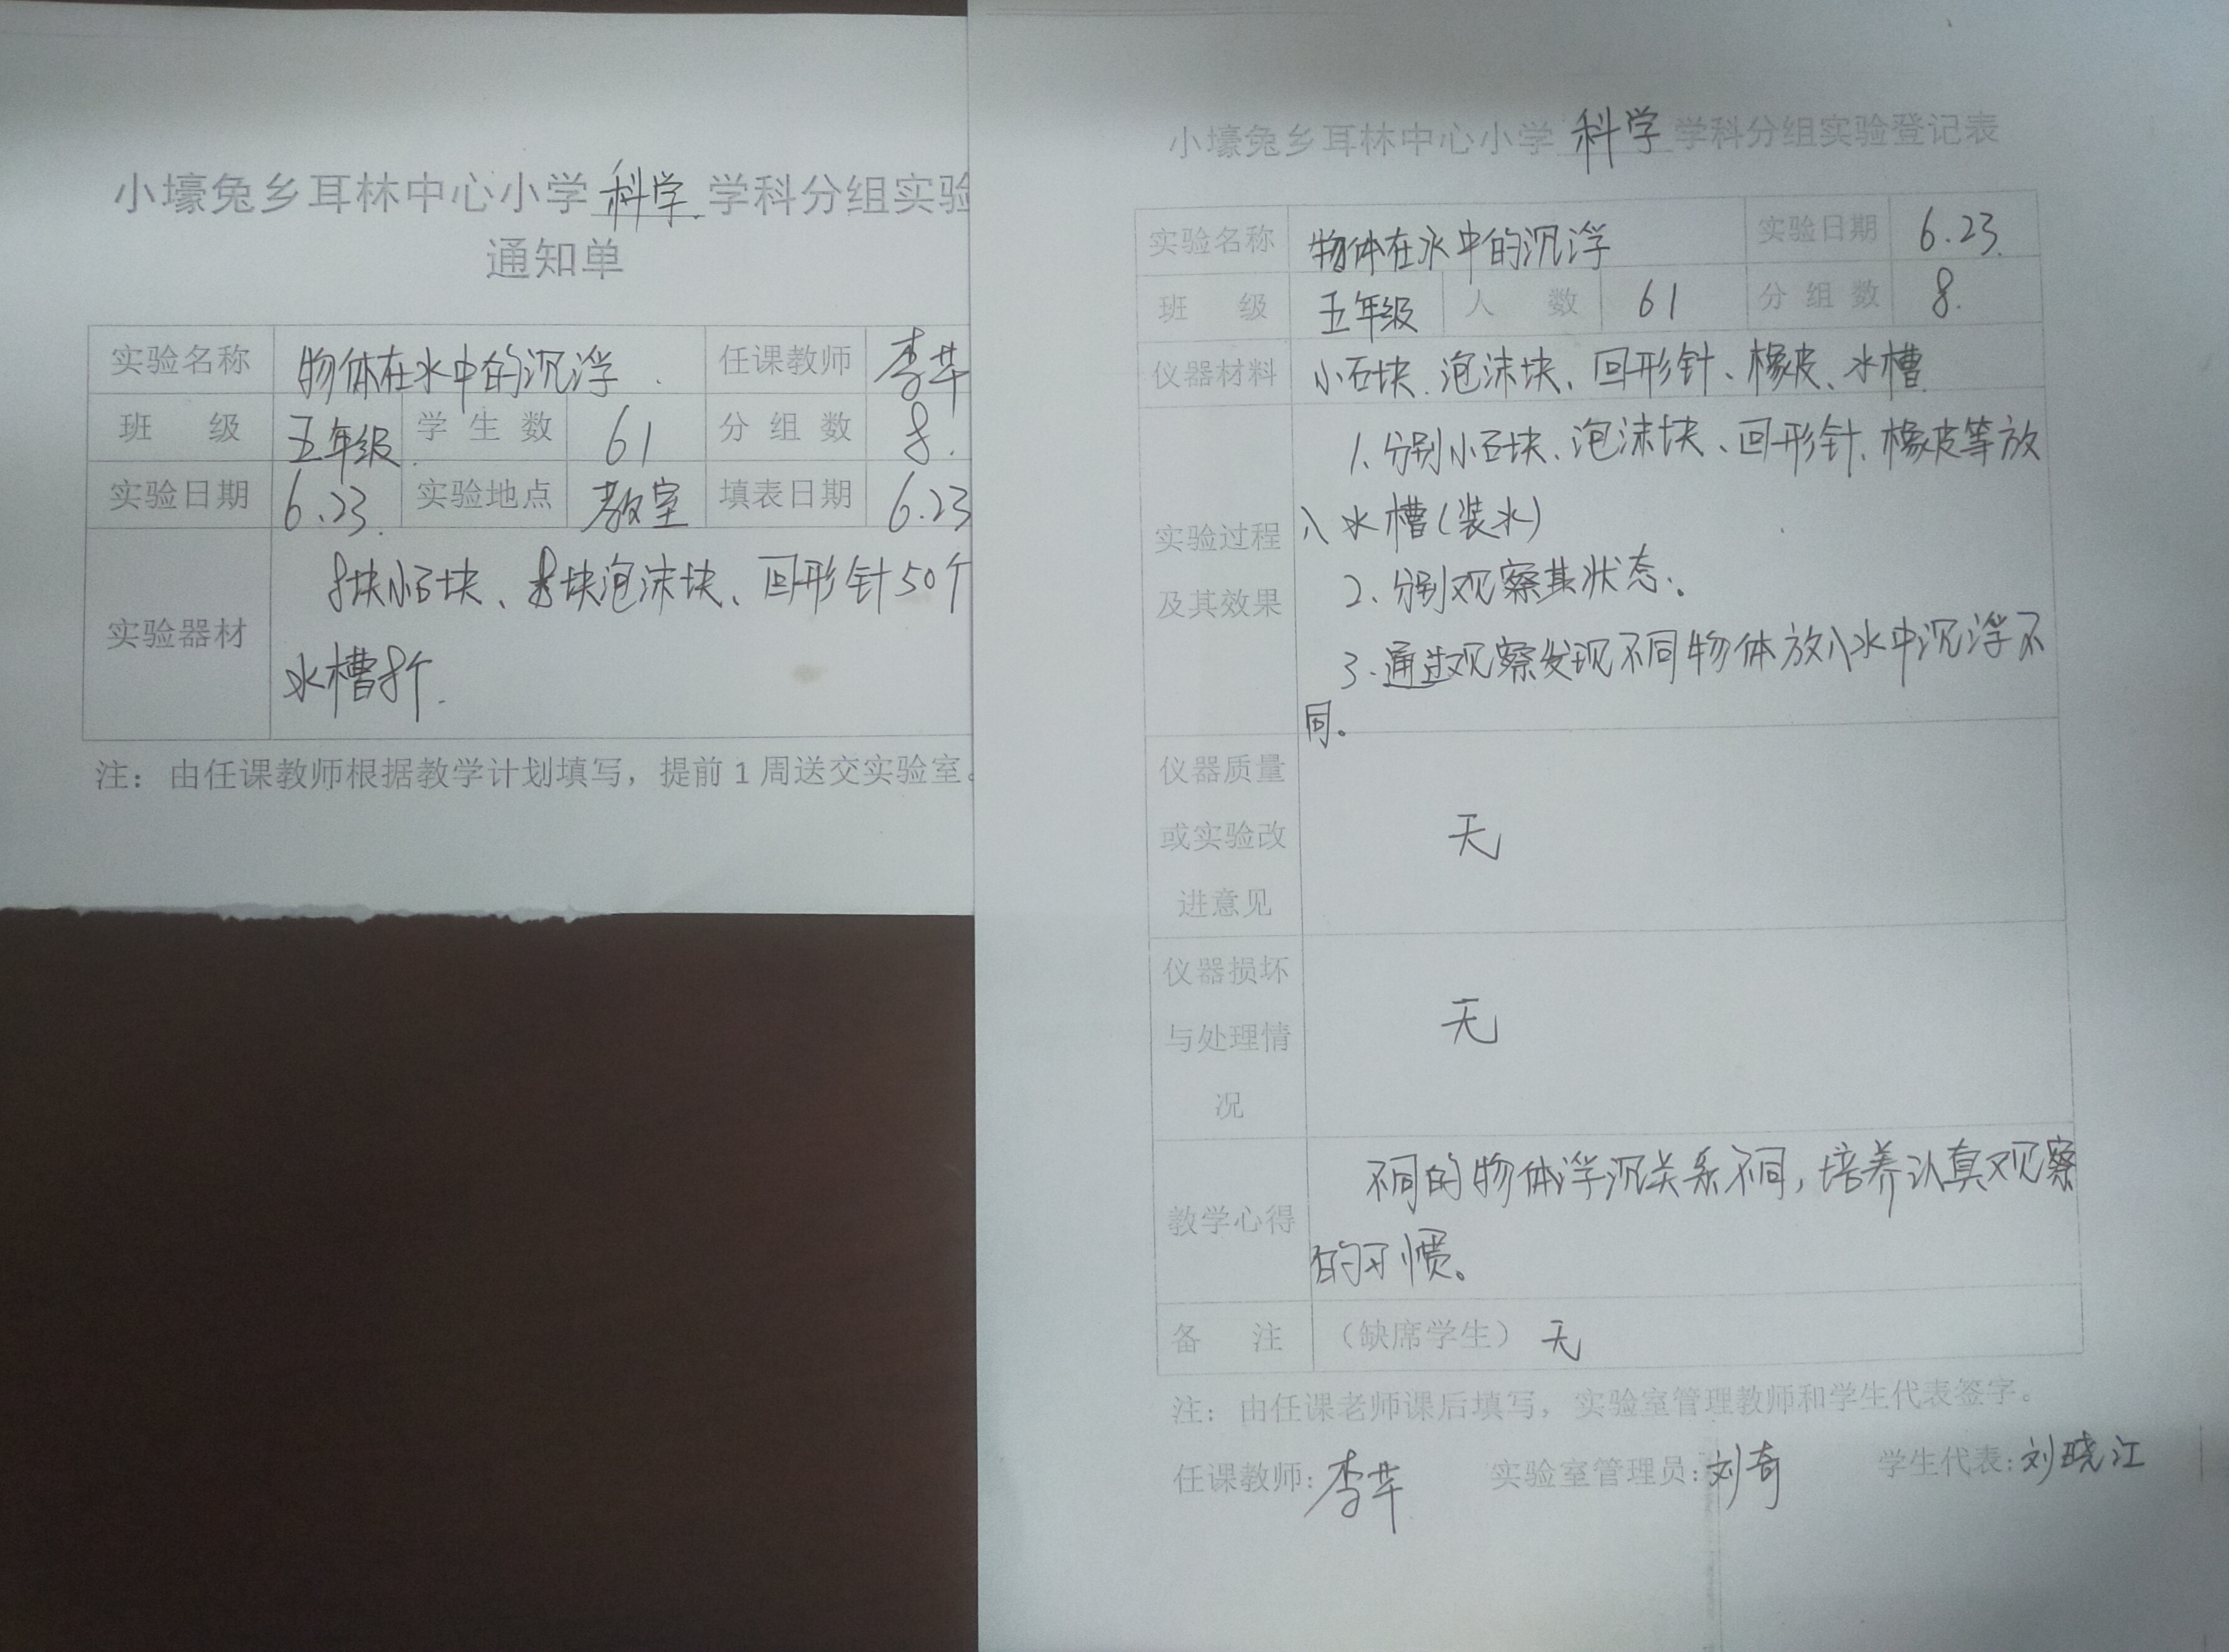 小壕兔乡耳林中心小学 科学 学科分组实验
通知单
实验名称 物体在水中的沉浮 任课教师 李芊
班 级 五年级 学生数 61 分组数 8.
实验日期 6.23. 实验地点 教室 填表日期 6.23
实验器材 8块小石块、8块泡沫块、回形针50个
水槽8个.
注：由任课教师根据教学计划填写，提前1周送交实验室。
小壕兔乡耳林中心小学 科学 学科分组实验登记表
实验名称 物体在水中的沉浮 实验日期 6.23.
班 级 五年级 人 数 61 分组数 8.
仪器材料 小石块、泡沫块、回形针、橡皮、水槽
1、分别小石块、泡沫块、回形针、橡皮等放
实验过程 入水槽(装水)
及其效果 2、分别观察其状态。
3.通过观察发现不同物体放入水中沉浮不
同。
仪器质量
或实验改 无
进意见
仪器损坏
与处理情 无
况
不同的物体浮沉关系不同，培养认真观察
教学心得 的习惯。
备 注 （缺席学生）无
注：由任课老师课后填写，实验室管理教师和学生代表签字。
任课教师：李芊 实验室管理员：刘奇 学生代表：刘晓江